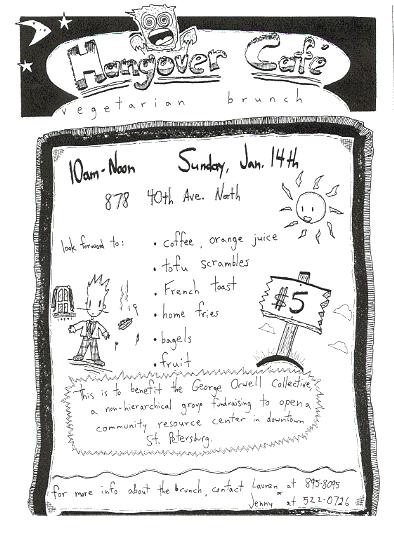 Hangover Café
vegetarian brunch
10am-Noon Sunday, Jan. 14th
878 40th Ave. North
look forward to:
• coffee, orange juice
• tofu scrambles
• French toast
• home fries
• bagels
• fruit
$5
This is to benefit the George Orwell Collective,
a non-hierarchical group fundraising to open a
community resource center in downtown
St. Petersburg.
for more info about the brunch, contact Lauren at 895-8095
or
Jenny at 522-0726